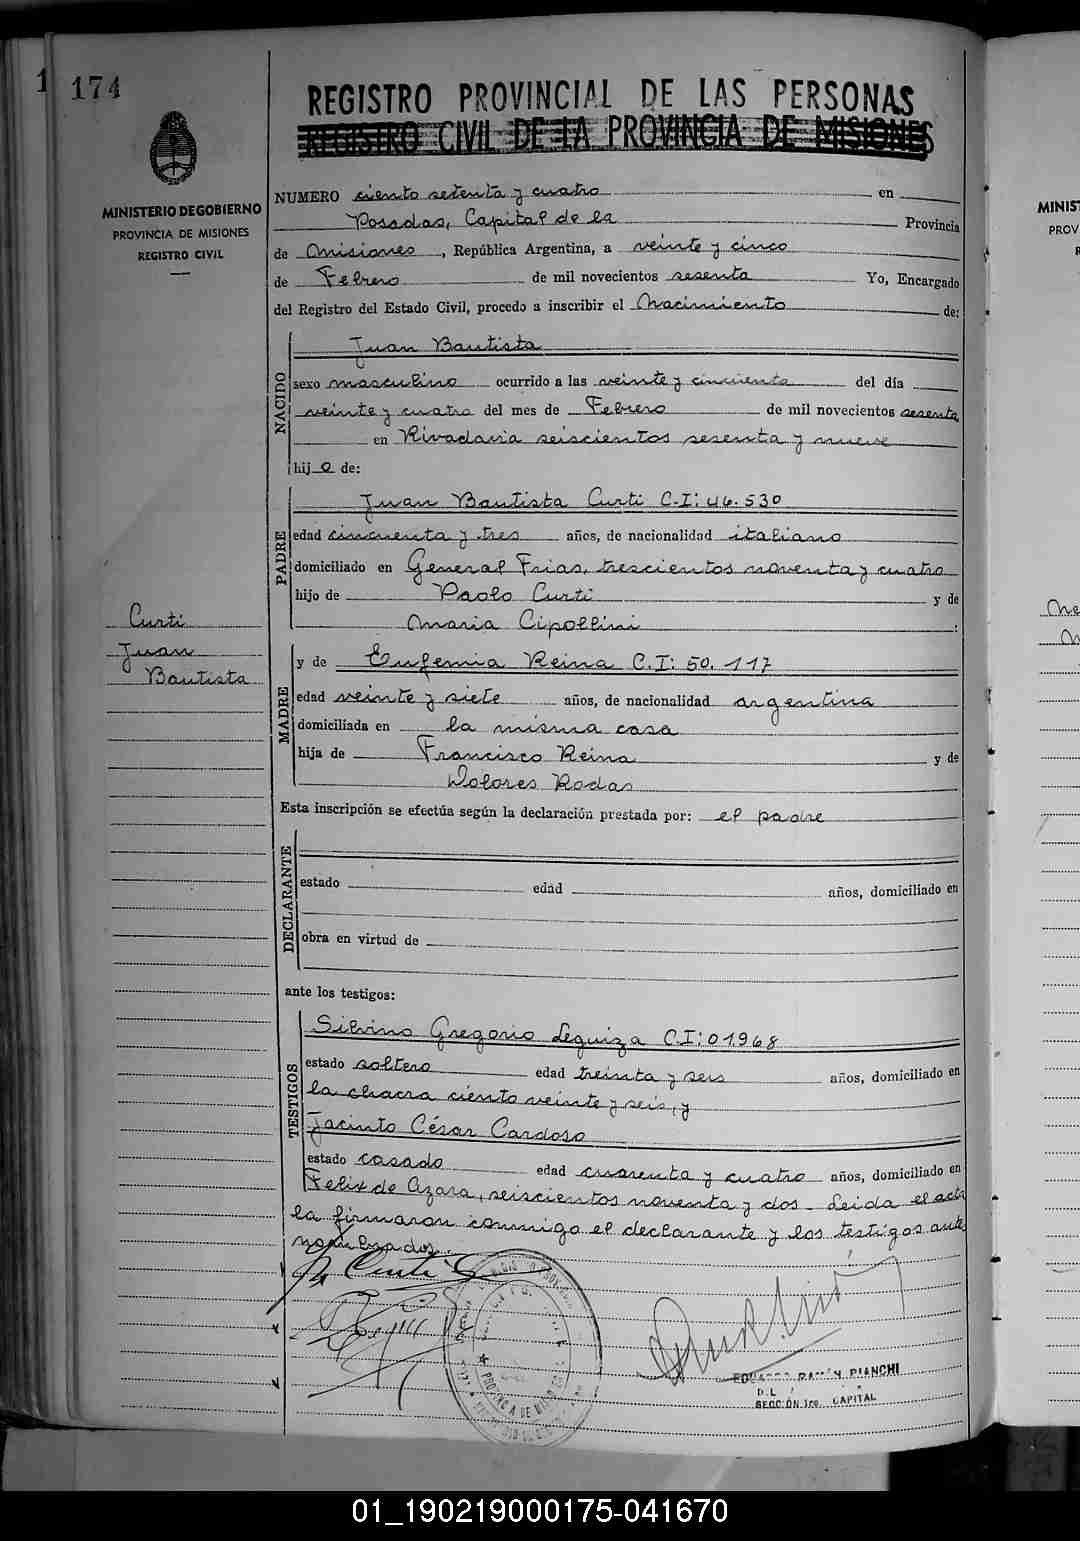 174
REGISTRO PROVINCIAL DE LAS PERSONAS
REGISTRO CIVIL DE LA PROVINCIA DE MISIONES
MINISTERIO DE GOBIERNO
PROVINCIA DE MISIONES
REGISTRO CIVIL
NUMERO ciento setenta y cuatro en
Posadas, Capital de la Provincia
de Misiones, República Argentina, a veinte y cinco
de Febrero de mil novecientos sesenta Yo, Encargado
del Registro del Estado Civil, procedo a inscribir el Nacimiento de:
NACIDO
Juan Bautista
sexo masculino ocurrido a las veinte y cincuenta del día
veinte y cuatro del mes de Febrero de mil novecientos sesenta
en Rivadavia seiscientos sesenta y nueve
hijo de:
PADRE
Juan Bautista Curti C.I: 46.530
edad cincuenta y tres años, de nacionalidad italiano
domiciliado en General Frias, trescientos noventa y cuatro
hijo de Paolo Curti y de
Maria Cipollini
Curti
Juan
Bautista
MADRE
y de Eufemia Reina C.I: 50.117
edad veinte y siete años, de nacionalidad argentina
domiciliada en la misma casa
hija de Francisco Reina y de
Dolores Rodas
Esta inscripción se efectúa según la declaración prestada por: el padre
DECLARANTE
estado edad años, domiciliado en
obra en virtud de
ante los testigos:
TESTIGOS
Silvino Gregorio Leguiza C.I: 01.968
estado soltero edad treinta y seis años, domiciliado en
la chacra ciento veinte y seis, y
Jacinto César Cardoso
estado casado edad cuarenta y cuatro años, domiciliado en
Felix de Azara, seiscientos noventa y dos - Leida el acta
la firmaron conmigo el declarante y los testigos ante
nombrados.
Curti
PROVINCIA DE MISIONES
EDUARDO RAMÓN BIANCHI
SECCIÓN 1ra. CAPITAL
MINIS
PROV
01_190219000175-041670